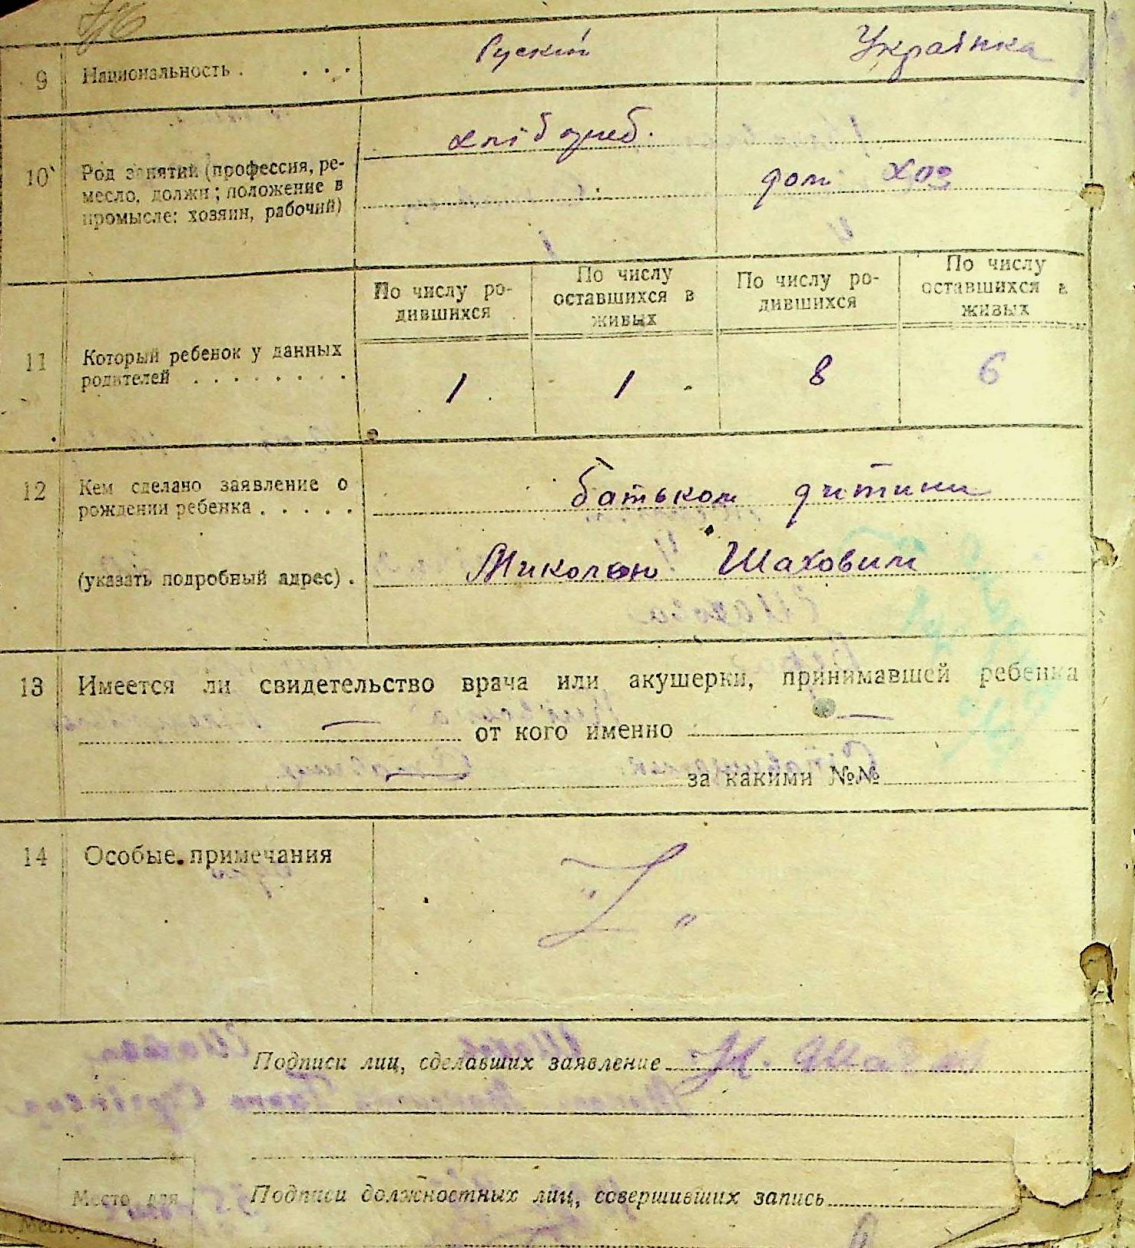 9 Национальность . . . . Руский Украінка
хлібороб.
10 Род занятий (профессия, ре-
месло, должн; положение в
промысле: хозяин, рабочий)
дом. хоз
По числу ро-
дившихся
По числу
оставшихся в
живых
По числу ро-
дившихся
По числу
оставшихся в
живых
11 Который ребенок у данных
родителей . . . . . . . .
1 1 8 6
12 Кем сделано заявление о
рождении ребенка . . . . .
батьком дитини
(указать подробный адрес) .
Миколою Шаховим
13 Имеется ли свидетельство врача или акушерки, принимавшей ребенка
— от кого именно —
— за какими №№
14 Особые примечания
Подписи лиц, сделавших заявление
Подписи должностных лиц, совершивших запись
Место для
Место